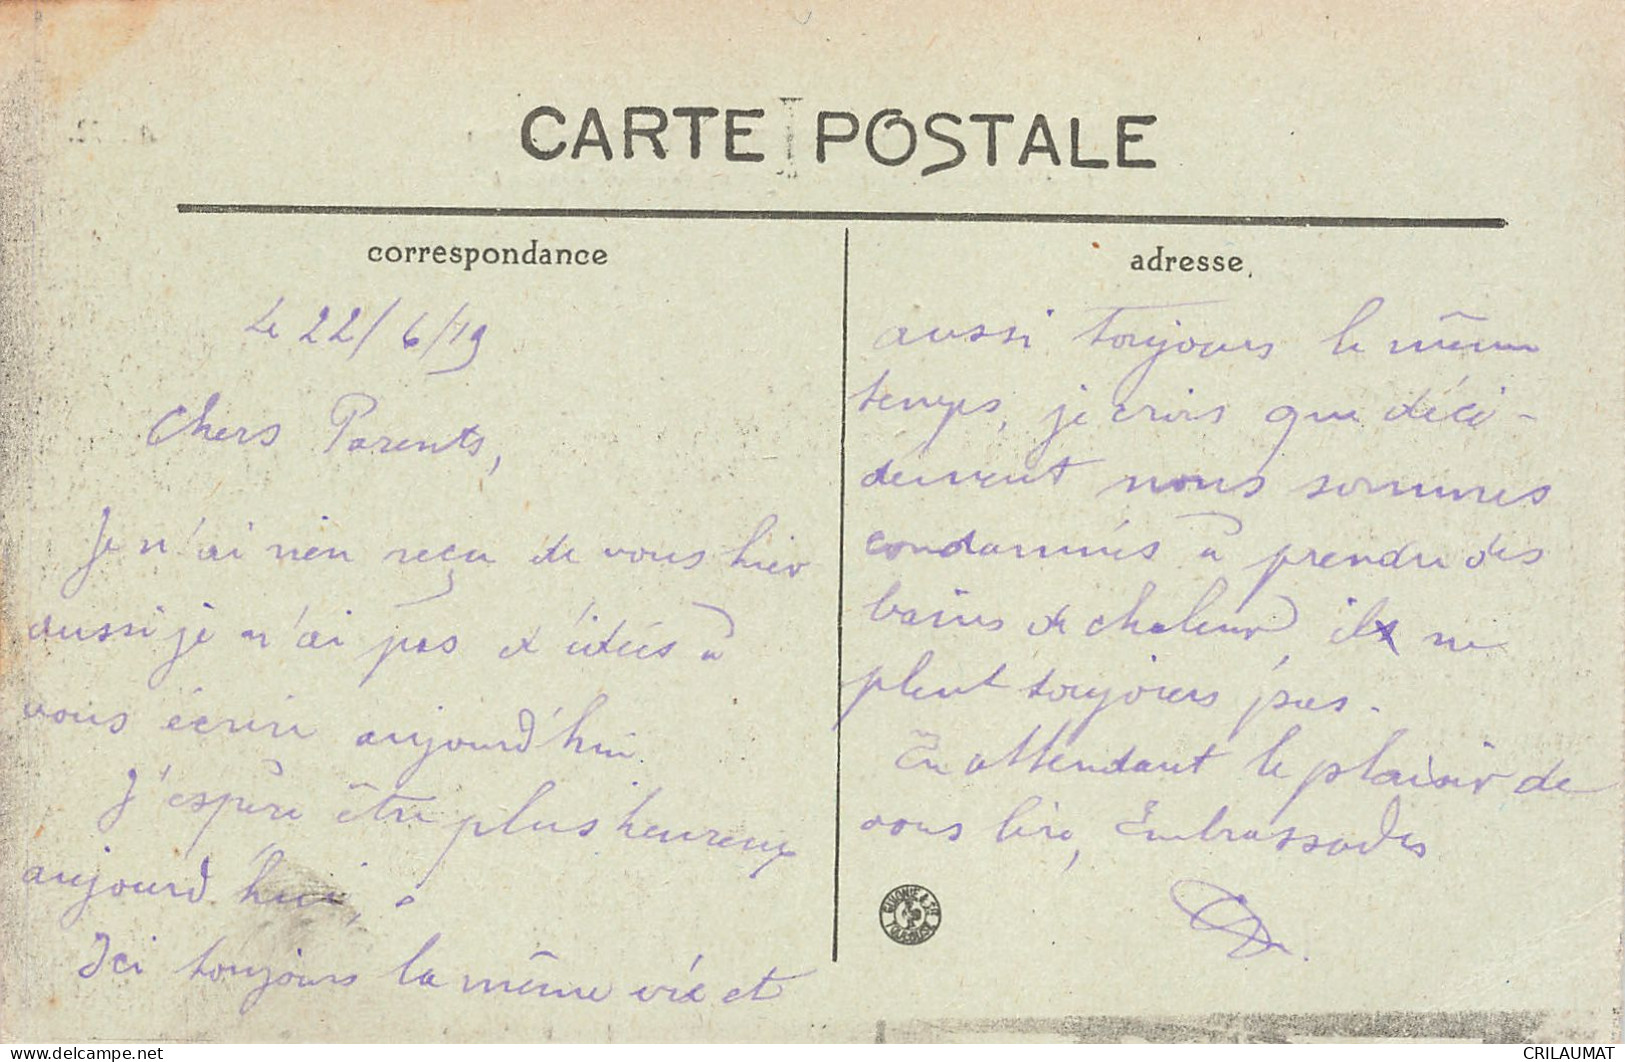 CARTE POSTALE
correspondance
Le 22/6/19
Chers Parents,
Je n'ai rien reçu de vous hier
aussi je n'ai pas d'idées à
vous écrire aujourd'hui.
J'espère être plus heureux
aujourd'hui,
Ici toujours la même vie et
adresse
aussi toujours le même
temps, je crois que déci-
demment nous sommes
condamnés à prendre des
bains de chaleur, il ne
pleut toujours pas.
En attendant le plaisir de
vous lire, Embrassades
TOULOUSE
www.delcampe.net
CRILAUMAT